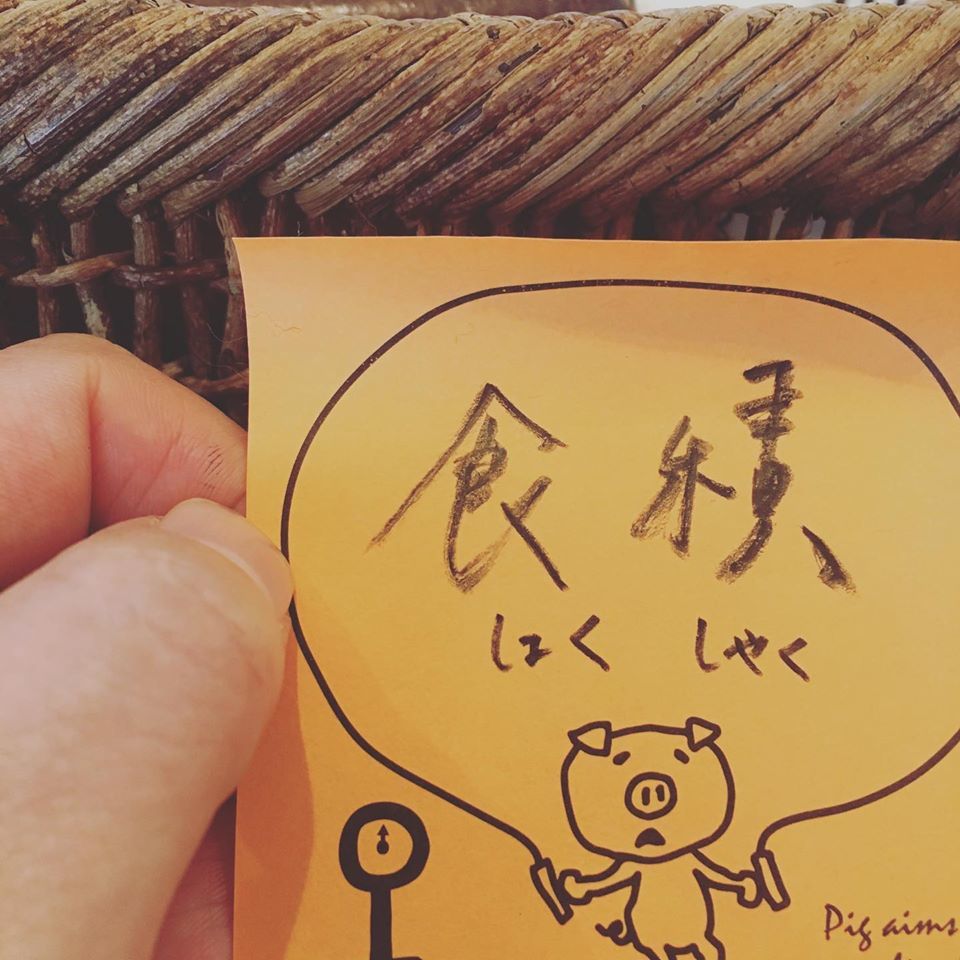 食積
しょくしゃく
Pig aims